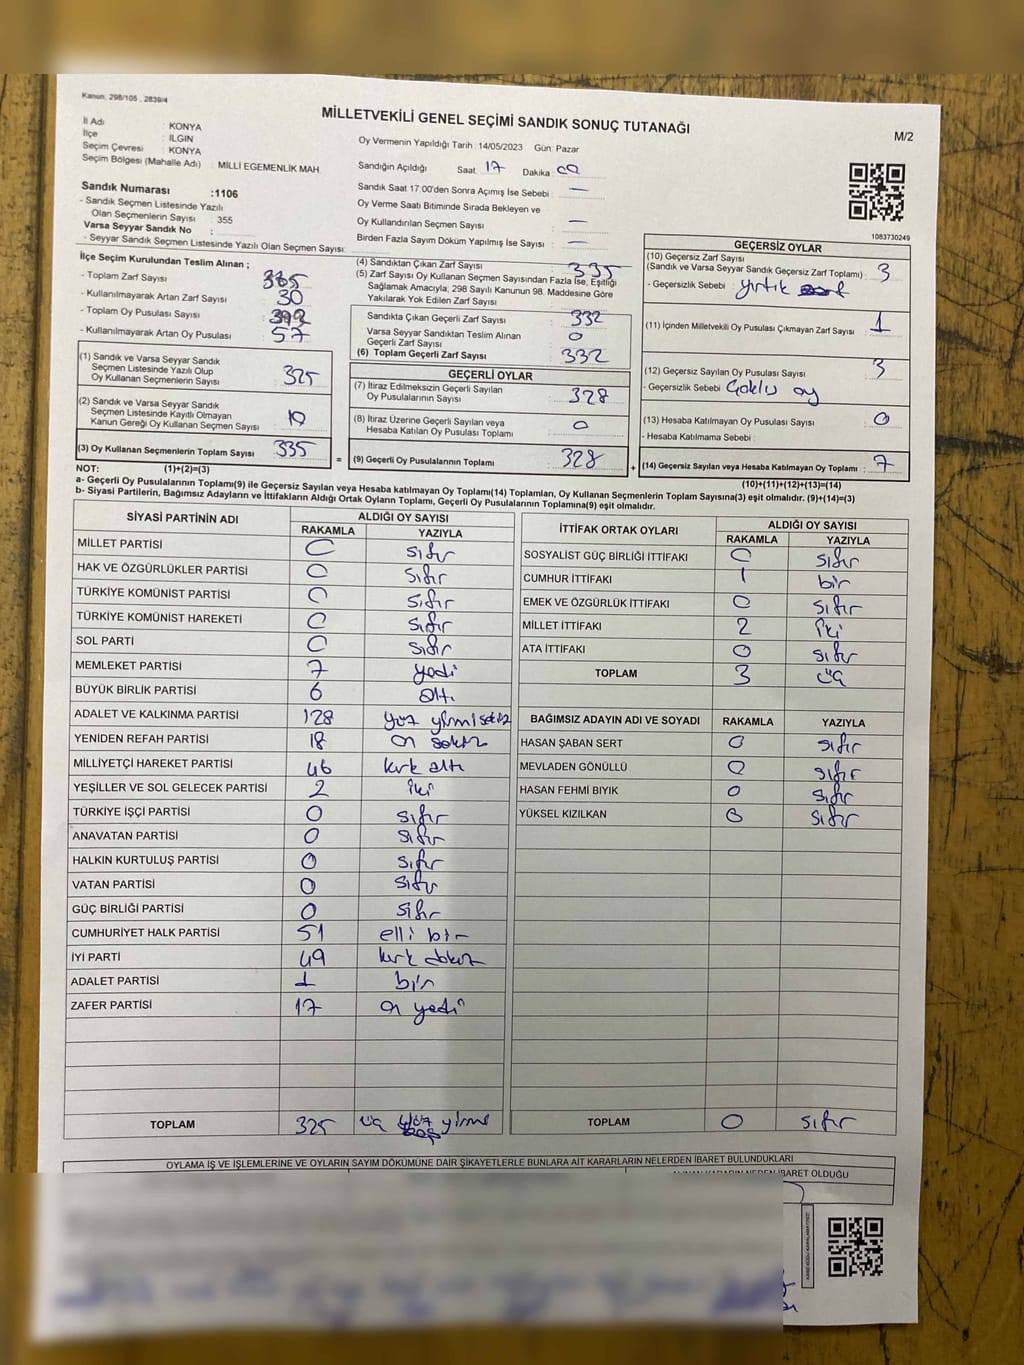 Kanun, 298/105 , 2839/4
MİLLETVEKİLİ GENEL SEÇİMİ SANDIK SONUÇ TUTANAĞI
M/2
İl Adı : KONYA
İlçe : ILGIN
Seçim Çevresi : KONYA
Seçim Bölgesi (Mahalle Adı) : MİLLİ EGEMENLİK MAH
Oy Vermenin Yapıldığı Tarih : 14/05/2023 Gün: Pazar
Sandığın Açıldığı Saat: 17 Dakika:
Sandık Saat 17:00'den Sonra Açımış İse Sebebi : —
Oy Verme Saati Bitiminde Sırada Bekleyen ve
Oy Kullandırılan Seçmen Sayısı : —
Birden Fazla Sayım Döküm Yapılmış İse Sayısı : —
1083730249
Sandık Numarası :1106
- Sandık Seçmen Listesinde Yazılı
Olan Seçmenlerin Sayısı : 355
Varsa Seyyar Sandık No :
- Seyyar Sandık Seçmen Listesinde Yazılı Olan Seçmen Sayısı:
İlçe Seçim Kurulundan Teslim Alınan ;
- Toplam Zarf Sayısı : 365
- Kullanılmayarak Artan Zarf Sayısı : 30
- Toplam Oy Pusulası Sayısı : 392
- Kullanılmayarak Artan Oy Pusulası : 57
(1) Sandık ve Varsa Seyyar Sandık
Seçmen Listesinde Yazılı Olup
Oy Kullanan Seçmenlerin Sayısı : 325
(2) Sandık ve Varsa Seyyar Sandık
Seçmen Listesinde Kayıtlı Olmayan
Kanun Gereği Oy Kullanan Seçmen Sayısı : 10
(3) Oy Kullanan Seçmenlerin Toplam Sayısı : 335
(4) Sandıktan Çıkan Zarf Sayısı : 335
(5) Zarf Sayısı Oy Kullanan Seçmen Sayısından Fazla İse, Eşitliği
Sağlamak Amacıyla; 298 Sayılı Kanunun 98. Maddesine Göre
Yakılarak Yok Edilen Zarf Sayısı :
Sandıkta Çıkan Geçerli Zarf Sayısı : 332
Varsa Seyyar Sandıktan Teslim Alınan
Geçerli Zarf Sayısı : 0
(6) Toplam Geçerli Zarf Sayısı : 332
GEÇERLİ OYLAR
(7) İtiraz Edilmeksizin Geçerli Sayılan
Oy Pusulalarının Sayısı : 328
(8) İtiraz Üzerine Geçerli Sayılan veya
Hesaba Katılan Oy Pusulası Toplamı : 0
= (9) Geçerli Oy Pusulalarının Toplamı : 328
GEÇERSİZ OYLAR
(10) Geçersiz Zarf Sayısı
(Sandık ve Varsa Seyyar Sandık Geçersiz Zarf Toplamı) : 3
- Geçersizlik Sebebi : yırtık
(11) İçinden Milletvekili Oy Pusulası Çıkmayan Zarf Sayısı : 1
(12) Geçersiz Sayılan Oy Pusulası Sayısı : 3
- Geçersizlik Sebebi : Çoklu oy
(13) Hesaba Katılmayan Oy Pusulası Sayısı : 0
- Hesaba Katılmama Sebebi :
+ (14) Geçersiz Sayılan veya Hesaba Katılmayan Oy Toplamı : 7
NOT: (1)+(2)=(3)
(10)+(11)+(12)+(13)=(14)
a- Geçerli Oy Pusulalarının Toplamı(9) ile Geçersiz Sayılan veya Hesaba katılmayan Oy Toplamı(14) Toplamları, Oy Kullanan Seçmenlerin Toplam Sayısına(3) eşit olmalıdır. (9)+(14)=(3)
b- Siyasi Partilerin, Bağımsız Adayların ve İttifakların Aldığı Ortak Oyların Toplamı, Geçerli Oy Pusulalarının Toplamına(9) eşit olmalıdır.
SİYASİ PARTİNİN ADI ALDIĞI OY SAYISI
RAKAMLA YAZIYLA
MİLLET PARTİSİ 0 sıfır
HAK VE ÖZGÜRLÜKLER PARTİSİ 0 sıfır
TÜRKİYE KOMÜNİST PARTİSİ 0 sıfır
TÜRKİYE KOMÜNİST HAREKETİ 0 sıfır
SOL PARTİ 0 sıfır
MEMLEKET PARTİSİ 7 yedi
BÜYÜK BİRLİK PARTİSİ 6 altı
ADALET VE KALKINMA PARTİSİ 128 yüz yirmi sekiz
YENİDEN REFAH PARTİSİ 18 on sekiz
MİLLİYETÇİ HAREKET PARTİSİ 46 kırk altı
YEŞİLLER VE SOL GELECEK PARTİSİ 2 iki
TÜRKİYE İŞÇİ PARTİSİ 0 sıfır
ANAVATAN PARTİSİ 0 sıfır
HALKIN KURTULUŞ PARTİSİ 0 sıfır
VATAN PARTİSİ 0 sıfır
GÜÇ BİRLİĞİ PARTİSİ 0 sıfır
CUMHURİYET HALK PARTİSİ 51 elli bir
İYİ PARTİ 49 kırk dokuz
ADALET PARTİSİ 1 bir
ZAFER PARTİSİ 17 on yedi
TOPLAM 325 üç yüz yirmi
İTTİFAK ORTAK OYLARI ALDIĞI OY SAYISI
RAKAMLA YAZIYLA
SOSYALİST GÜÇ BİRLİĞİ İTTİFAKI 0 sıfır
CUMHUR İTTİFAKI 1 bir
EMEK VE ÖZGÜRLÜK İTTİFAKI 0 sıfır
MİLLET İTTİFAKI 2 iki
ATA İTTİFAKI 0 sıfır
TOPLAM 3 üç
BAĞIMSIZ ADAYIN ADI VE SOYADI RAKAMLA YAZIYLA
HASAN ŞABAN SERT 0 sıfır
MEVLADEN GÖNÜLLÜ 0 sıfır
HASAN FEHMİ BIYIK 0 sıfır
YÜKSEL KIZILKAN 0 sıfır
TOPLAM 0 sıfır
OYLAMA İŞ VE İŞLEMLERİNE VE OYLARIN SAYIM DÖKÜMÜNE DAİR ŞİKAYETLERLE BUNLARA AİT KARARLARIN NELERDEN İBARET BULUNDUKLARI